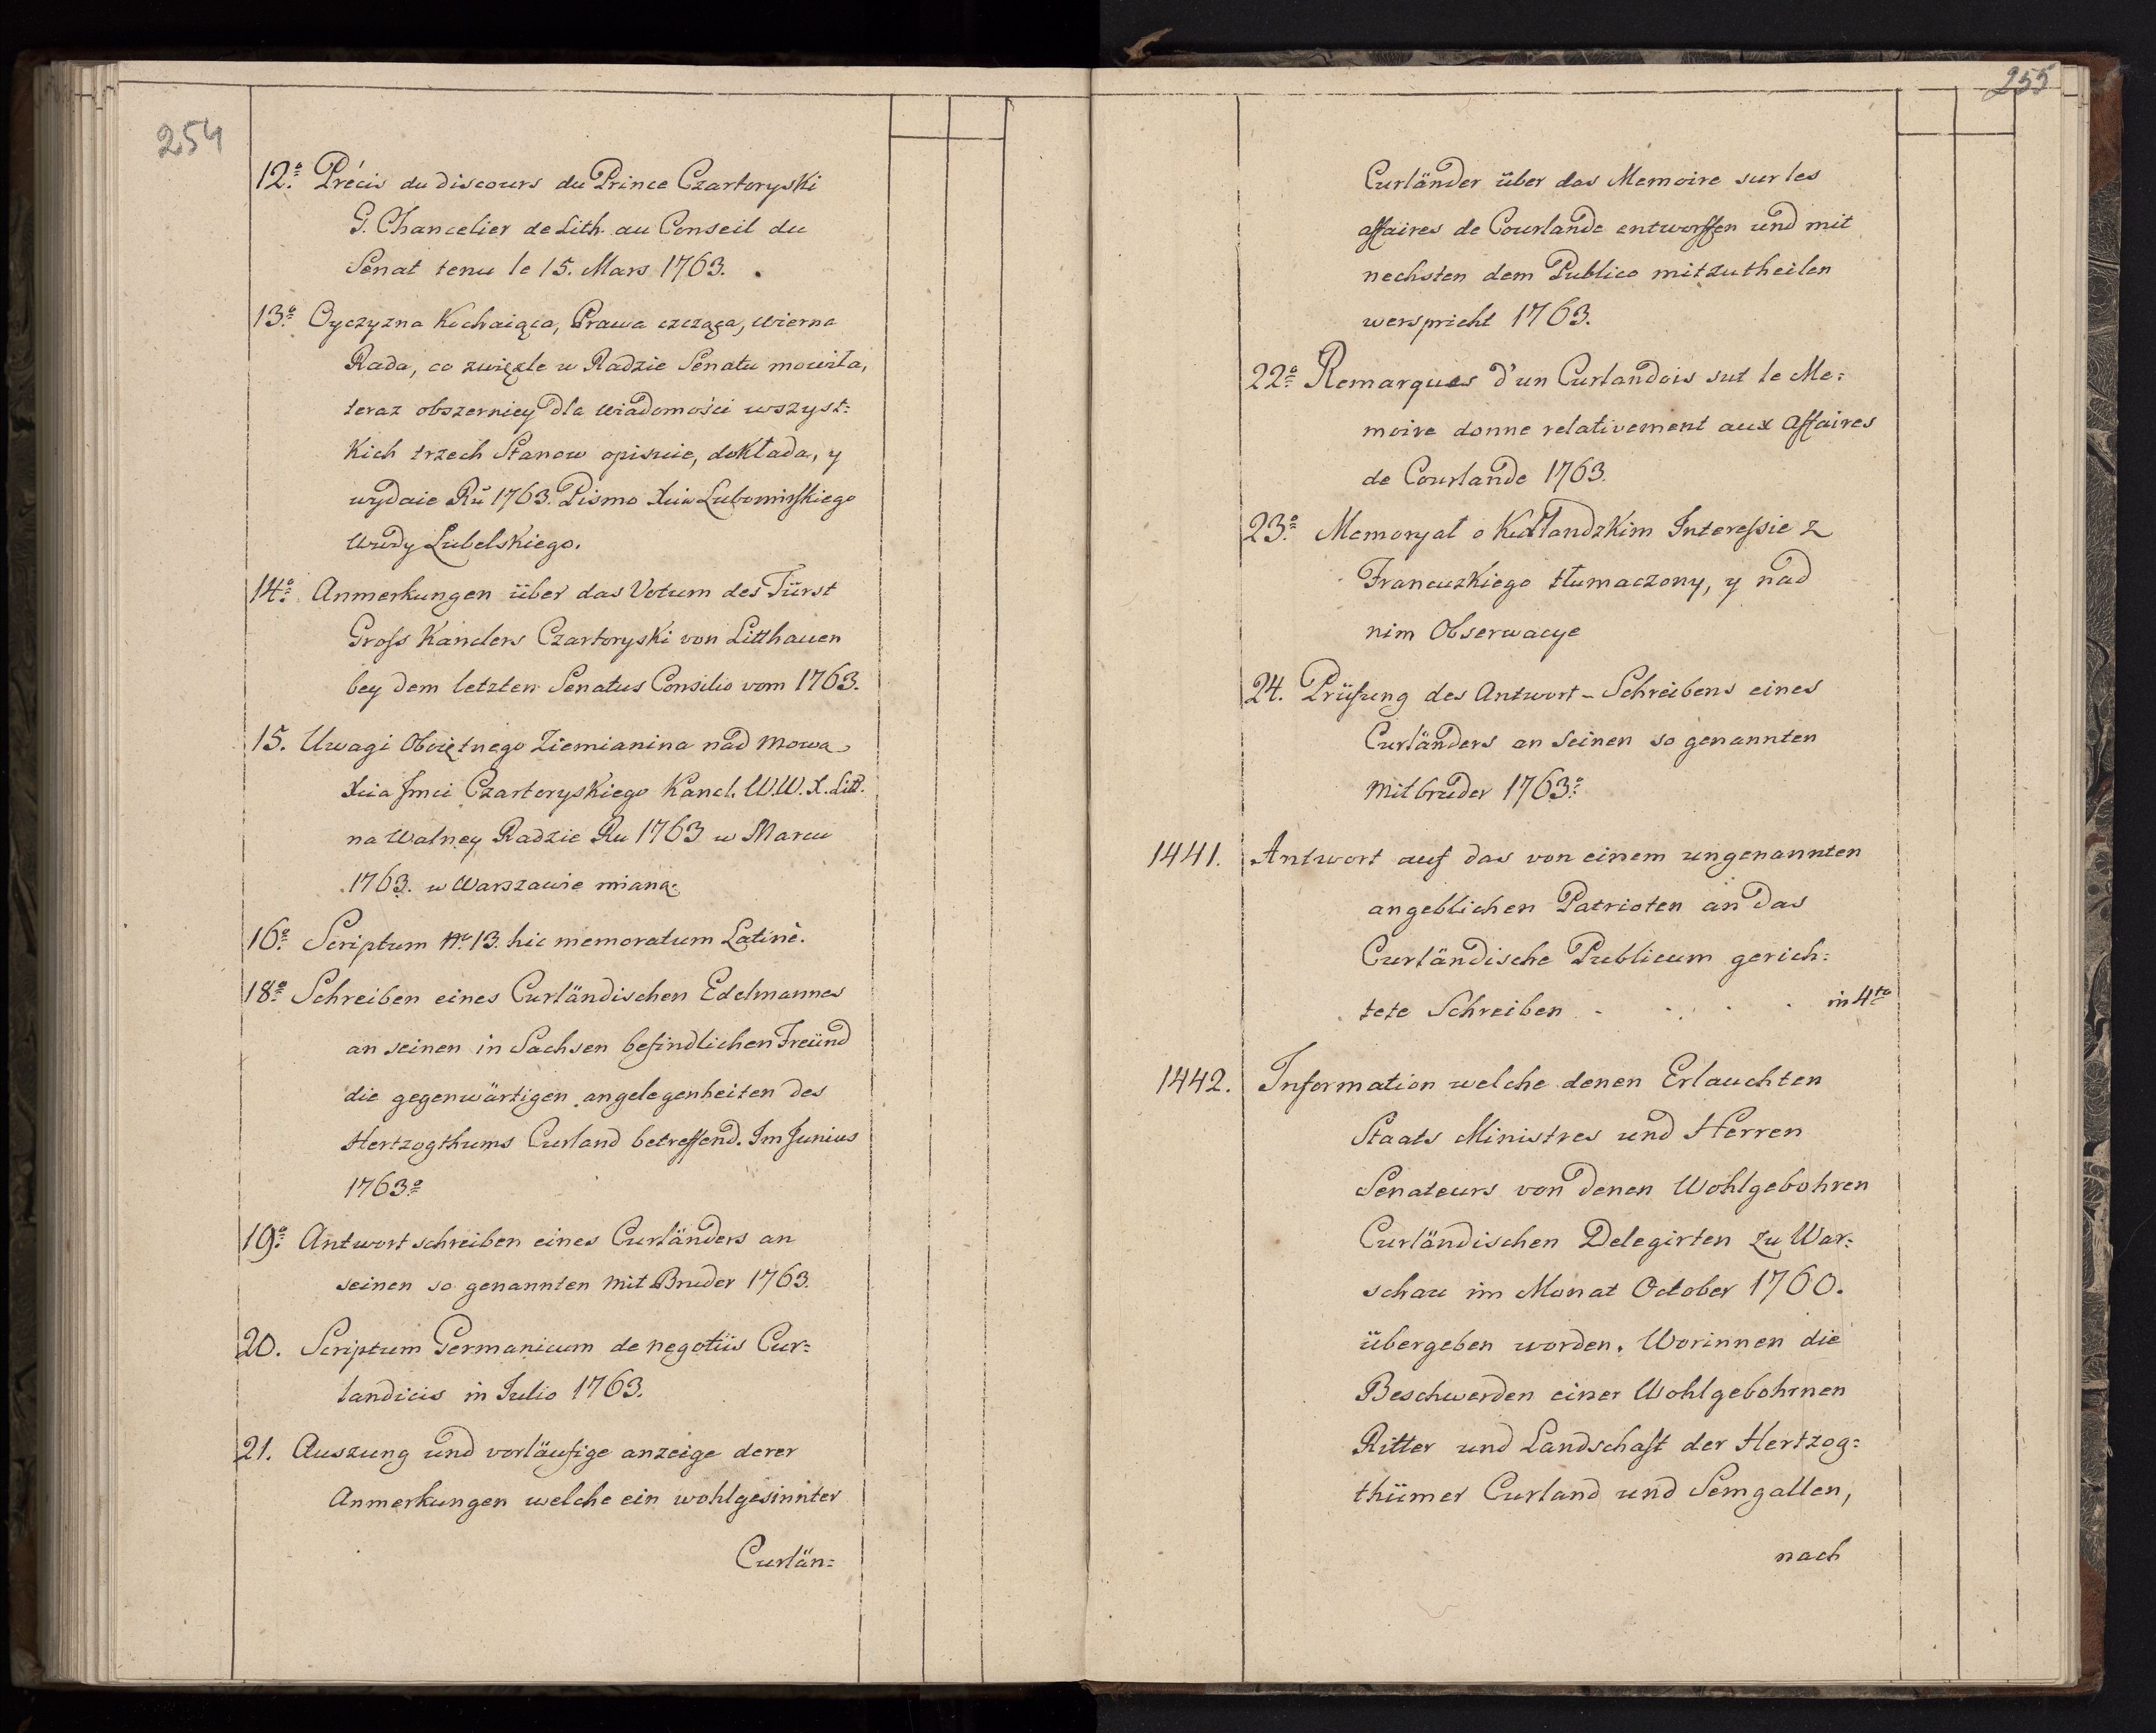 254
12º Précis du discours du Prince Czartoryski
G. Chancelier de Lith. au Conseil du
Senat tenu le 15. Mars 1763.
13º Oyczyzna Kochaiąca, Prawa czcząca, wierna
Rada, co zwięzle w Radzie Senatu mowiła,
teraz obszerniey dla wiadomości wszyst=
kich trzech Stanow opisuie, dokłada, y
wydaie Rũ 1763. Pismo Xcia Lubomirskiego
Wwdy Lubelskiego.
14º Anmerkungen über das Votum des Fürst
Gross Kanclers Czartoryski von Litthauen
bey dem letzten Senatus Consilio vom 1763.
15. Uwagi Oboiętnego Ziemianina nad mowa
Xcia Jmci Czartoryskiego Kancl. W.W.X.Litt.
na Walney Radzie Ru 1763 w Marcu
1763. w Warszawie mianą.
16º Scriptum No. 13. hic memoratum Latinè.
18º Schreiben eines Curländischen Edelmannes
an seinen in Sachsen befindlichen Freünd
die gegenwärtigen angelegenheiten des
Hertzogthums Curland betreffend. Im Junius
1763º
19º Antwort schreiben eines Curländers an
seinen so genannten mit Bruder 1763.
20. Scriptum Germanicum de negotiis Cur=
landicis in Julio 1763.
21. Auszung und vorläufige anzeige derer
Anmerkungen welche ein wohlgesinnter
Curlän=
255
Curländer über das Memoire sur les
affaires de Courlande entworffen und mit
nechsten dem Publico mitzutheilen
werspricht 1763.
22º Remarques d'un Curlandois sut le Me=
moire donne relativement aux affaires
de Courlande 1763.
23º Memoryał o Kurlandzkim Interessie z
Francuzkiego tłumaczony, y nad
nim Obserwacye
24. Prüfung des Antwort-Schreibens eines
Curländers an seinen so genannten
Mitbruder 1763º
1441. Antwort auf das von einem ungenannten
angeblichen Patrioten an das
Curländische Publicum gerich=
tete Schreiben . . . . . in 4to
1442. Information welche denen Erlauchten
Staats Ministres und Herren
Senateurs von denen Wohlgebohren
Curländischen Delegirten zu War=
schau im Monat October 1760.
übergeben worden. Worinnen die
Beschwerden einer Wohlgebohrnen
Ritter und Landschaft der Hertzog=
thümer Curland und Semgallen,
nach